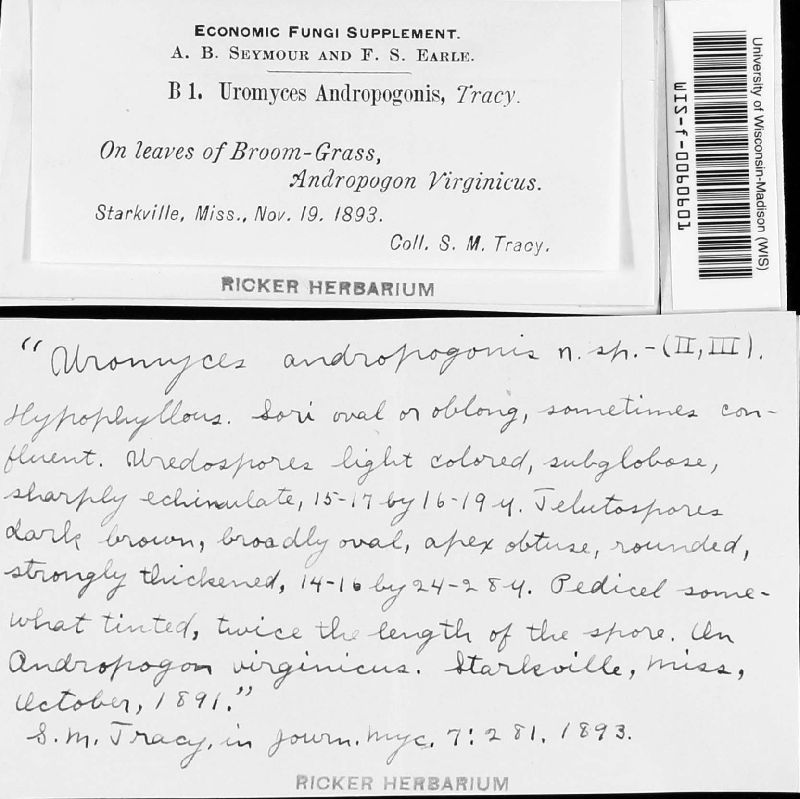 ECONOMIC FUNGI SUPPLEMENT.
A. B. SEYMOUR AND F. S. EARLE.
B 1. Uromyces Andropogonis, Tracy.
On leaves of Broom-Grass,
Andropogon Virginicus.
Starkville, Miss., Nov. 19, 1893.
Coll. S. M. Tracy.
RICKER HERBARIUM
University of Wisconsin-Madison (WIS)
WIS-f-0090901
"Uromyces andropogonis n. sp. - (II, III).
Hypophyllous. Sori oval or oblong, sometimes con-
fluent. Uredospores light colored, subglobose,
sharply echinulate, 15-17 by 16-19 µ. Telutospores
dark brown, broadly oval, apex obtuse, rounded,
strongly thickened, 14-16 by 24-28 µ. Pedicel some-
what tinted, twice the length of the spore. On
Andropogon virginicus. Starkville, Miss,
October, 1891."
S. M. Tracy, in Journ. Myc. 7: 281. 1893.
RICKER HERBARIUM